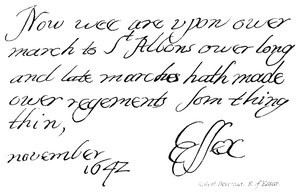 Now wee are upon ower
march to St Albons ower long
and late marches hath made
ower regements som thing
thin,
november
1642
Essex
Robert Devereux E. of Essex